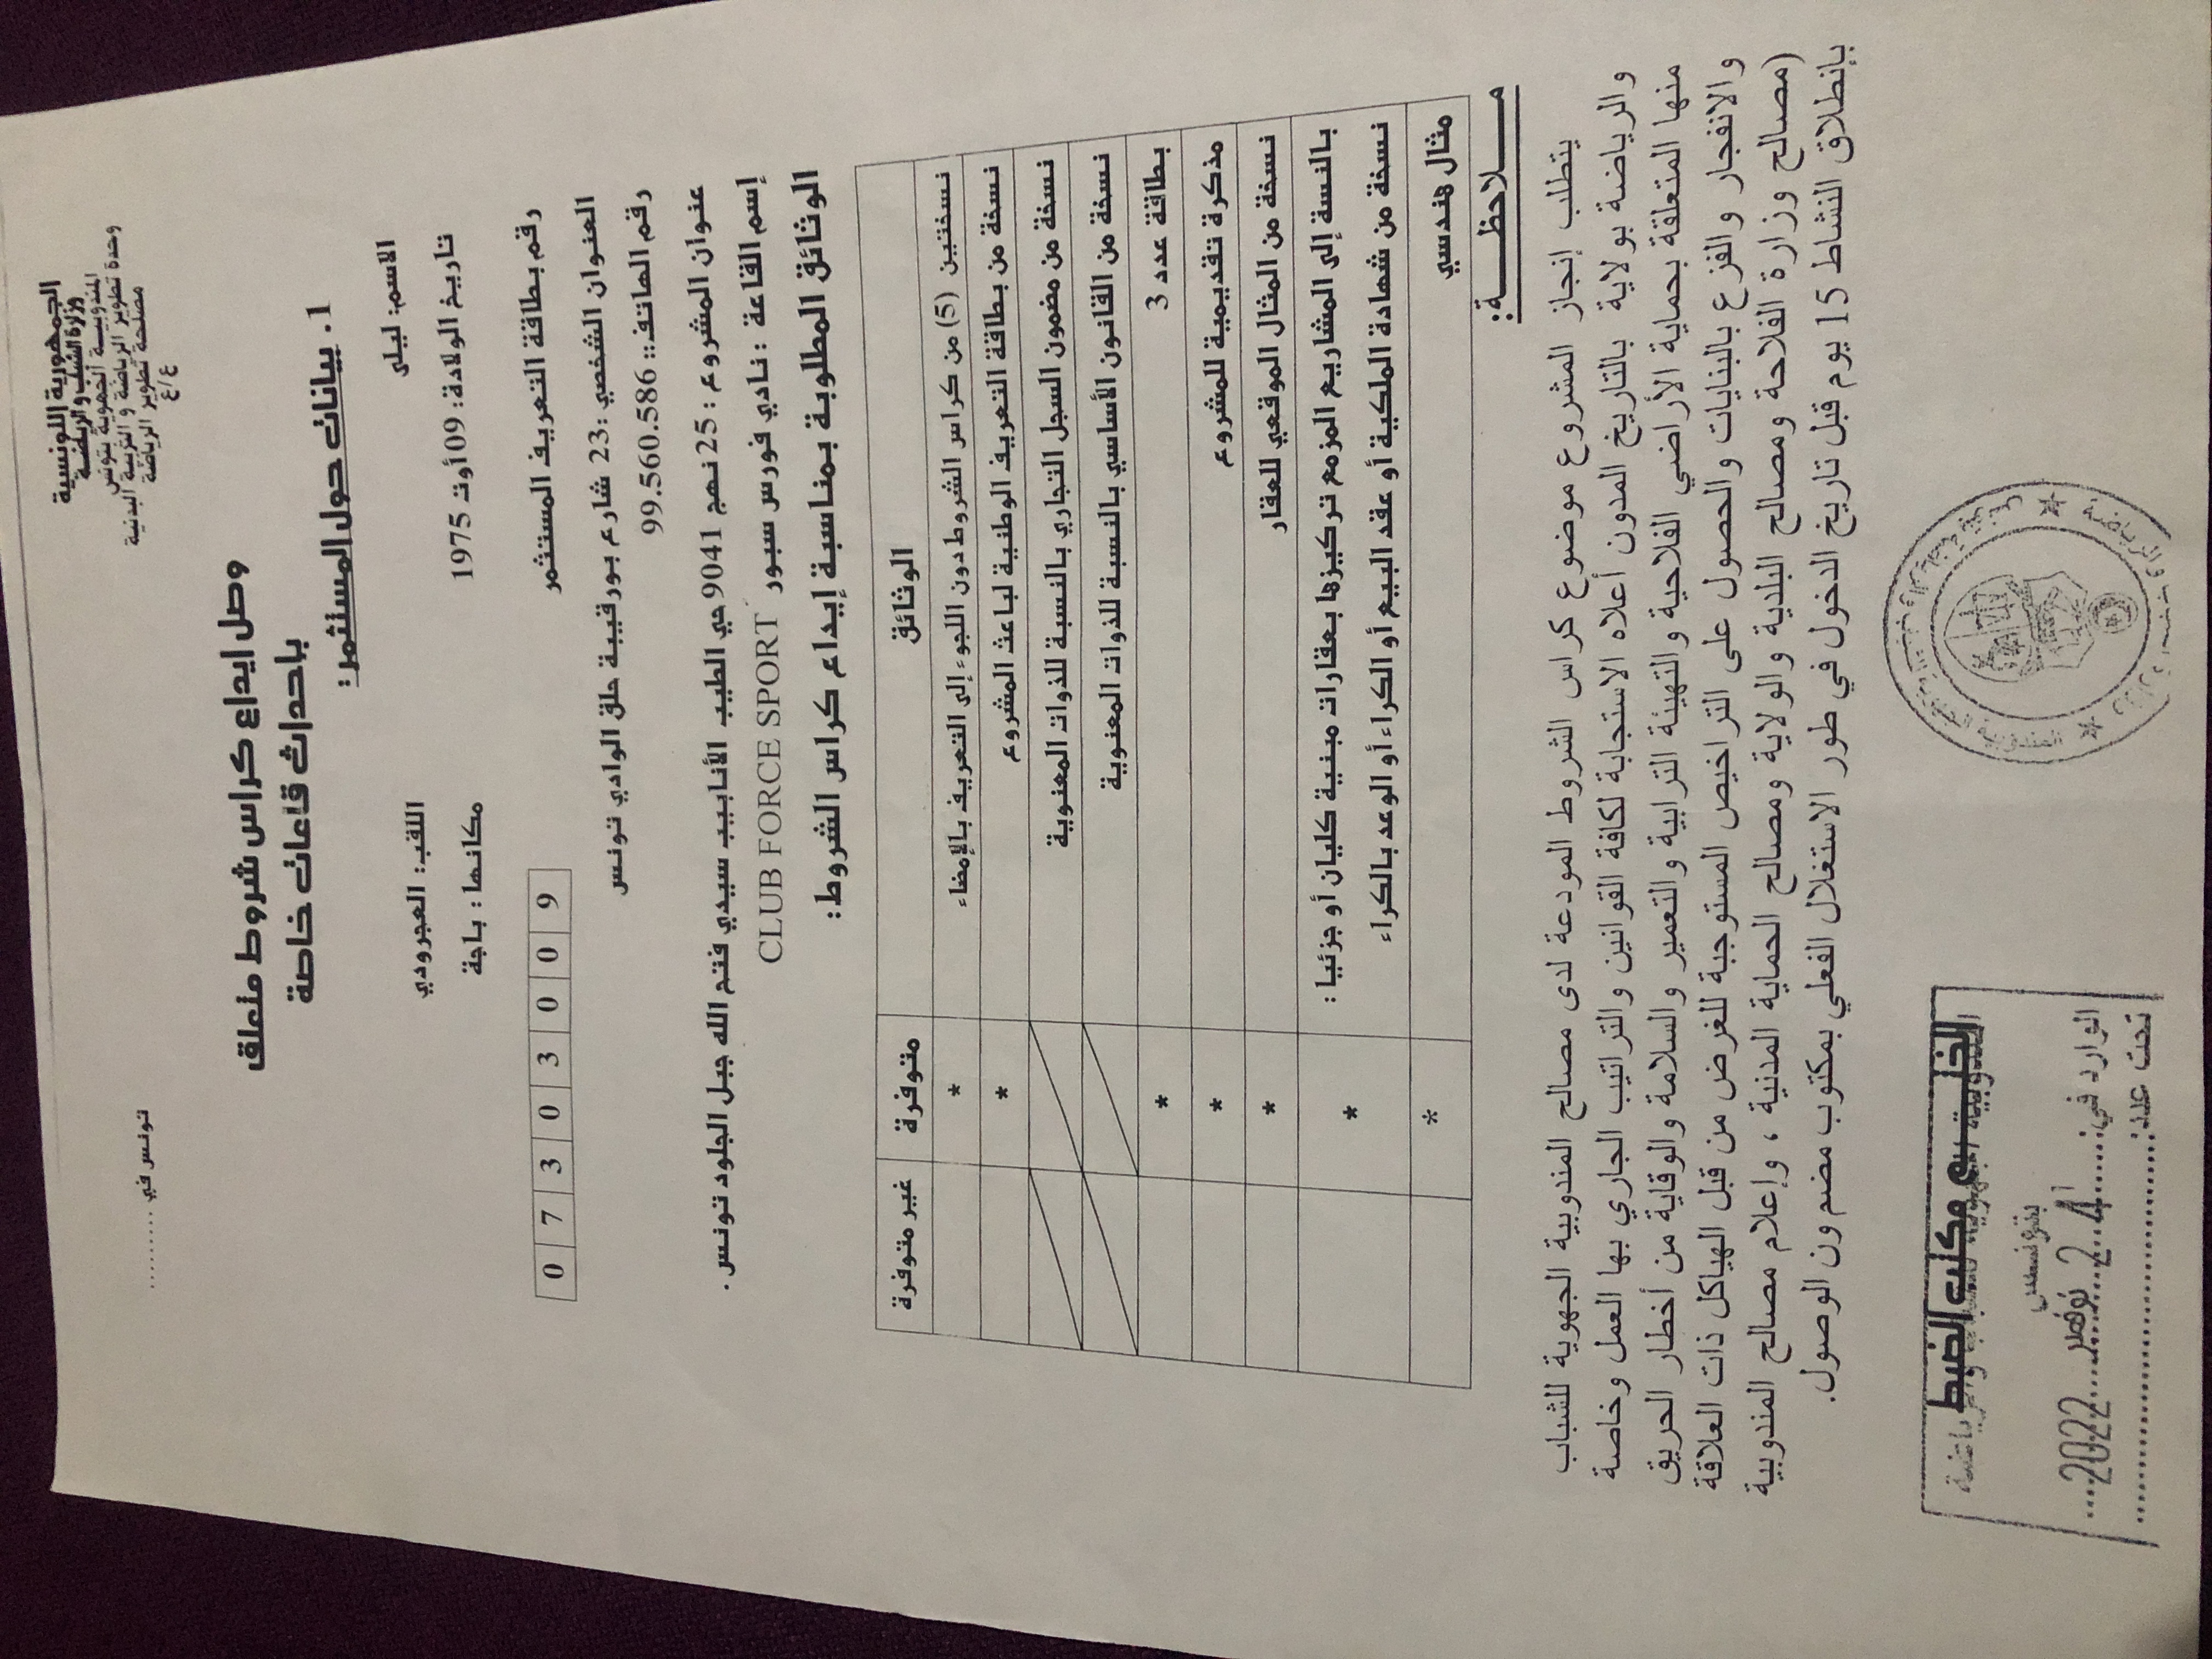 الجمهورية التونسية
وزارة الشباب والرياضة
المندوبية الجهوية بتونس
وحدة تطوير الرياضة و التربية البدنية
مصلحة تطوير الرياضة
ع/ع
تونس في .........
وصل إيداع كراس شروط متعلق
بإحداث قاعات خاصة
1. بيانات حول المستثمر:
الاسم: ليلى اللقب: العجرودي
تاريخ الولادة: 09 أوت 1975 مكانها : باجة
رقم بطاقة التعريف المستثمر 0 7 3 0 3 0 0 9
العنوان الشخصي :23 شارع بورقيبة حلق الوادي تونس
رقم الهاتف :: 99.560.586
عنوان المشروع : 25 نهج 9041 حي الطيب الأنابيب سيدي فتح الله جبل الجلود تونس .
إسم القاعة : نادي فورس سبور CLUB FORCE SPORT
الوثائق المطلوبة بمناسبة إيداع كراس الشروط:
الوثائق متوفرة غير متوفرة
نسختين (5) من كراس الشروط دون اللجوء إلى التعريف بالإمضاء *
نسخة من بطاقة التعريف الوطنية لباعث المشروع *
نسخة من مضمون السجل التجاري بالنسبة للذوات المعنوية
نسخة من القانون الأساسي بالنسبة للذوات المعنوية
بطاقة عدد 3 *
مذكرة تقديمية للمشروع *
نسخة من المثال الموقعي للعقار *
بالنسة إلى المشاريع المزمع تركيزها بعقارات مبنية كليان أو جزئيا :
نسخة من شهادة الملكية أو عقد البيع أو الكراء أو الوعد بالكراء *
مثال هندسي *
مـــلاحظـــة:
يتطلب إنجاز المشروع موضوع كراس الشروط المودعة لدى مصالح المندوبية الجهوية للشباب
والرياضة بولاية بالتاريخ المدون أعلاه الاستجابة لكافة القوانين والتراتيب الجاري بها العمل وخاصة
منها المتعلقة بحماية الأراضي الفلاحية والتهيئة الترابية والتعمير والسلامة والوقاية من أخطار الحريق
والانفجار والفزع بالبنايات والحصول على التراخيص المستوجبة للغرض من قبل الهياكل ذات العلاقة
(مصالح وزارة الفلاحة ومصالح البلدية والولاية ومصالح الحماية المدنية ، وإعلام مصالح المندوبية
بإنطلاق النشاط 15 يوم قبل تاريخ الدخول في طور الاستغلال الفعلي بمكتوب مضم ون الوصول.
مكتب الضبط
بتونس
الوارد في: 2 4 نوفمبر 2022
تحت عدد: